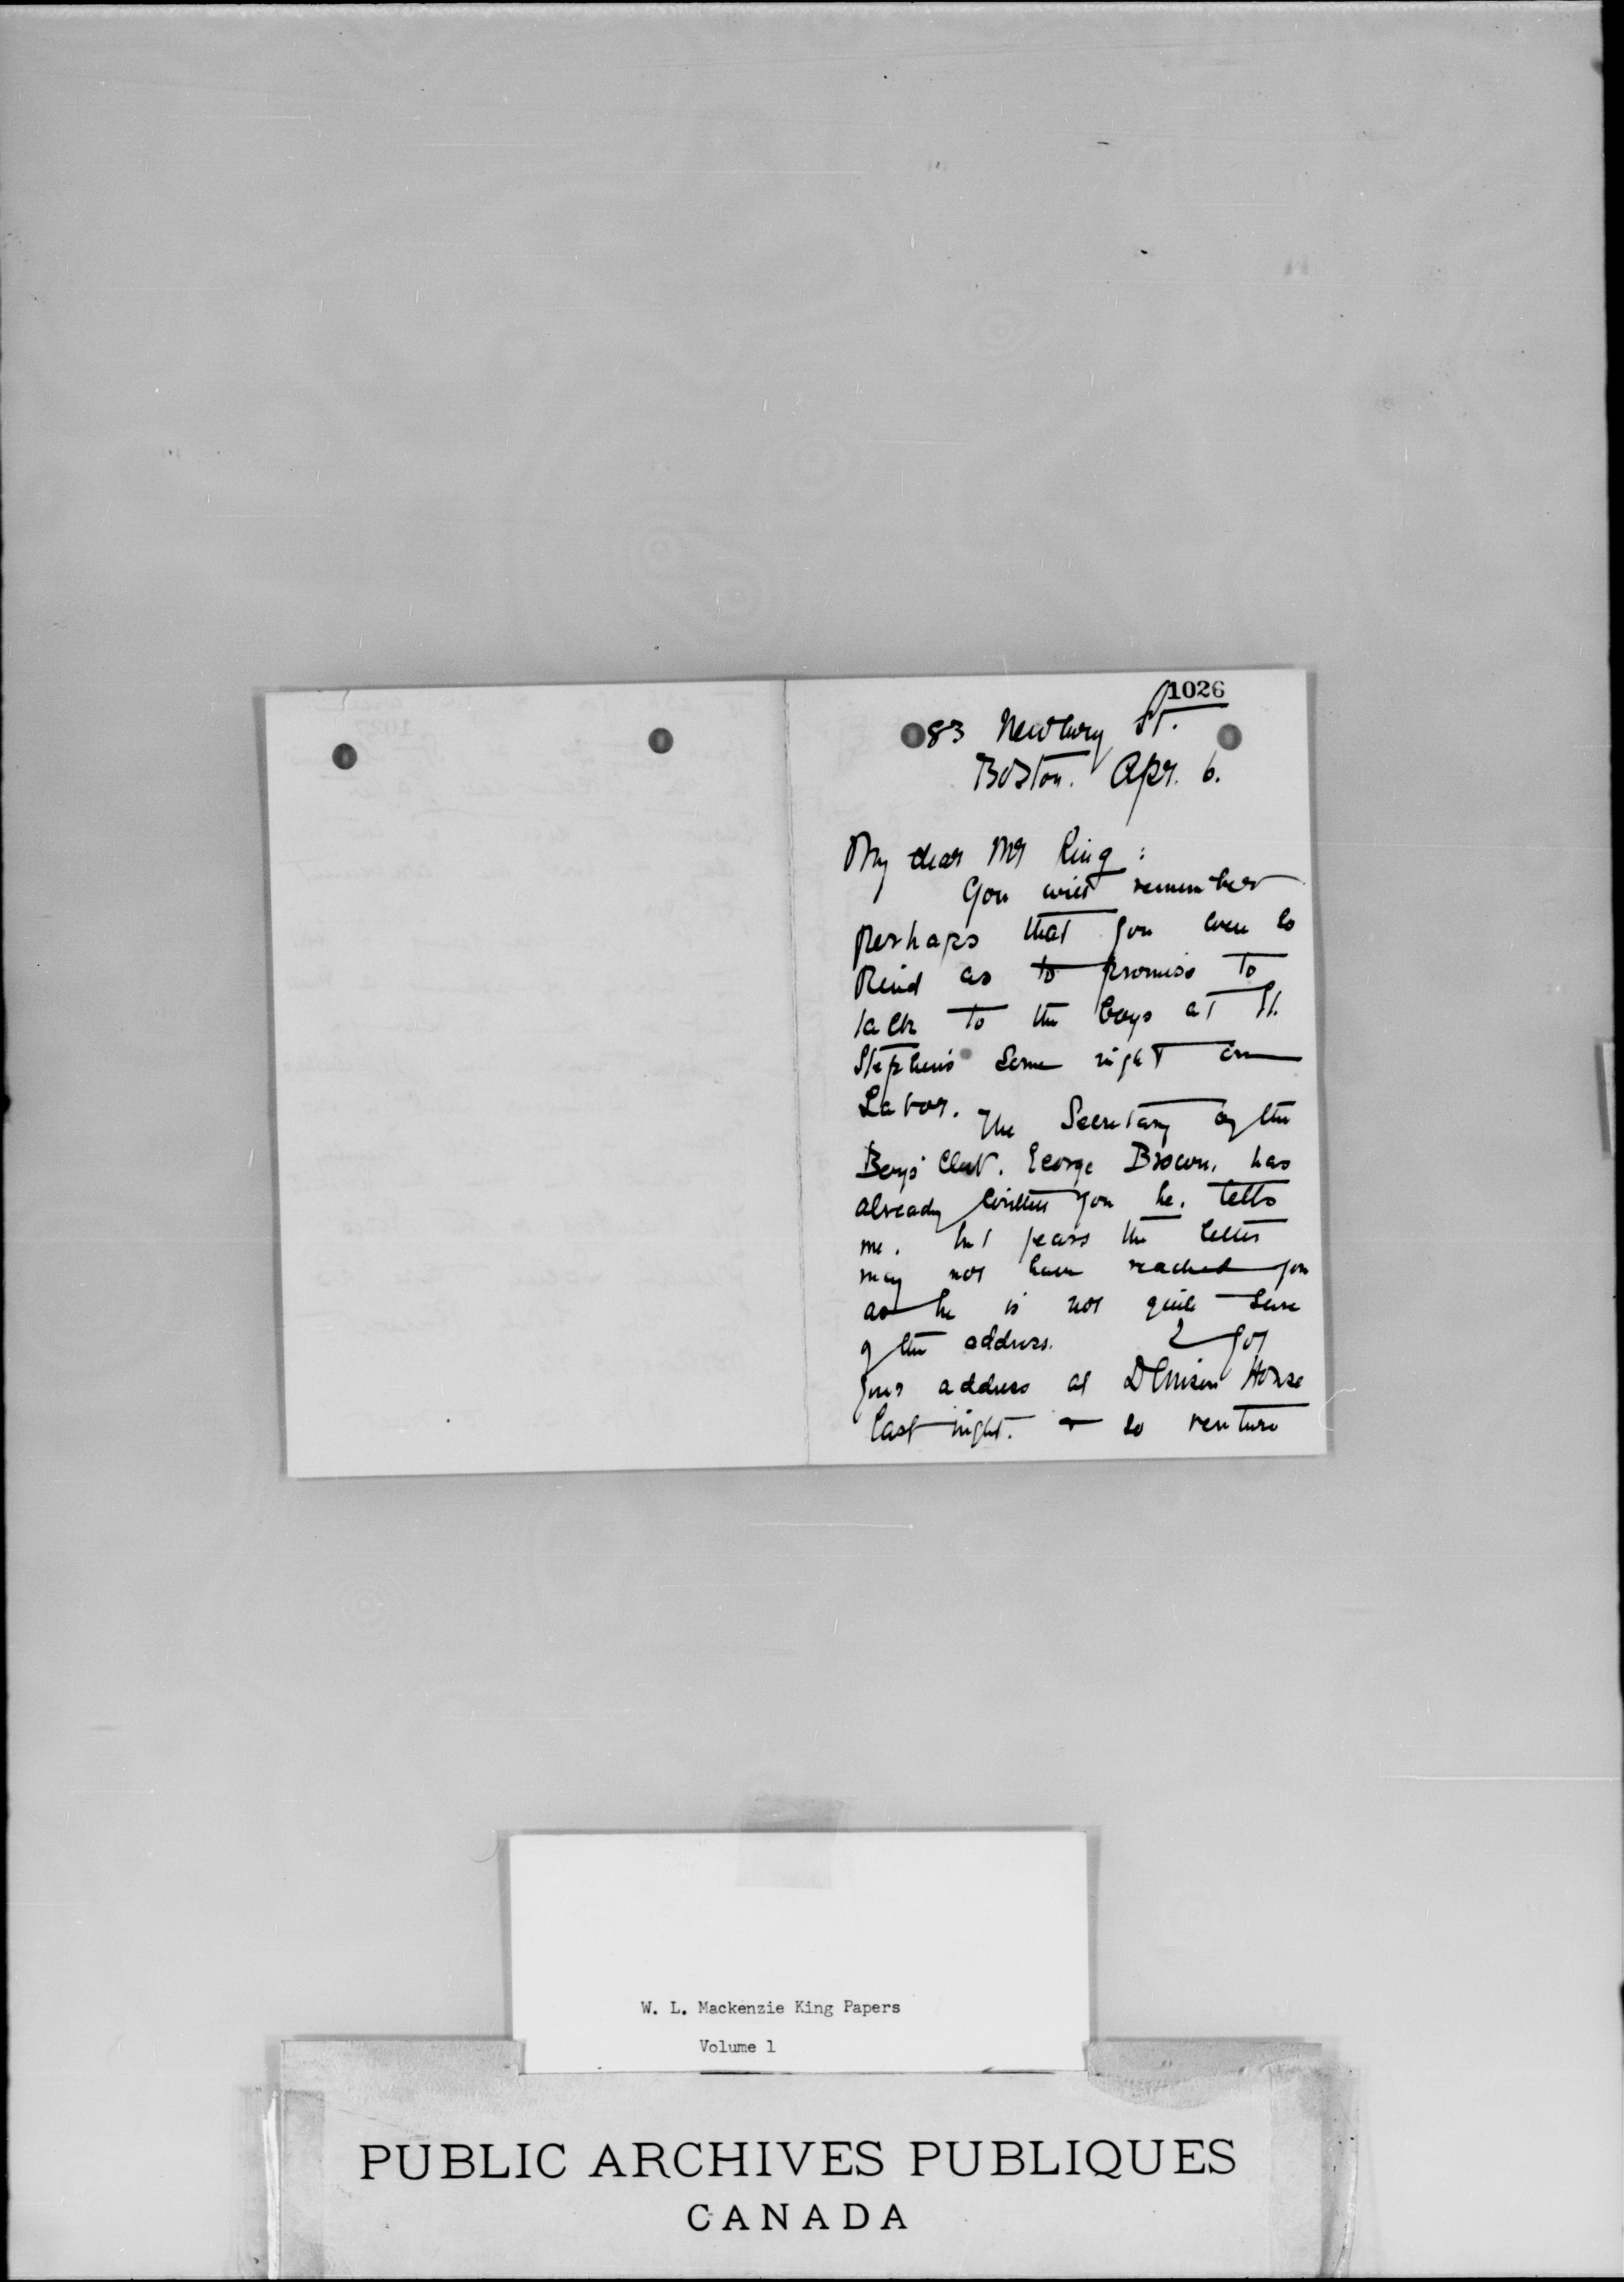 1026
83 Newbury St.
Boston. Apr. 6.
My dear Mr King:
You will remember
perhaps that you were so
kind as to promise to
talk to the boys at St.
Stephen's some night on
Labor.
The Secretary of the
Boys' Club. George Brown, has
already written you he tells
me. but fears the letter
may not have reached you
as he is not quite sure
of the address. I got
your address at Denison House
last night. & so venture
W. L. Mackenzie King Papers
Volume 1
PUBLIC ARCHIVES PUBLIQUES
CANADA